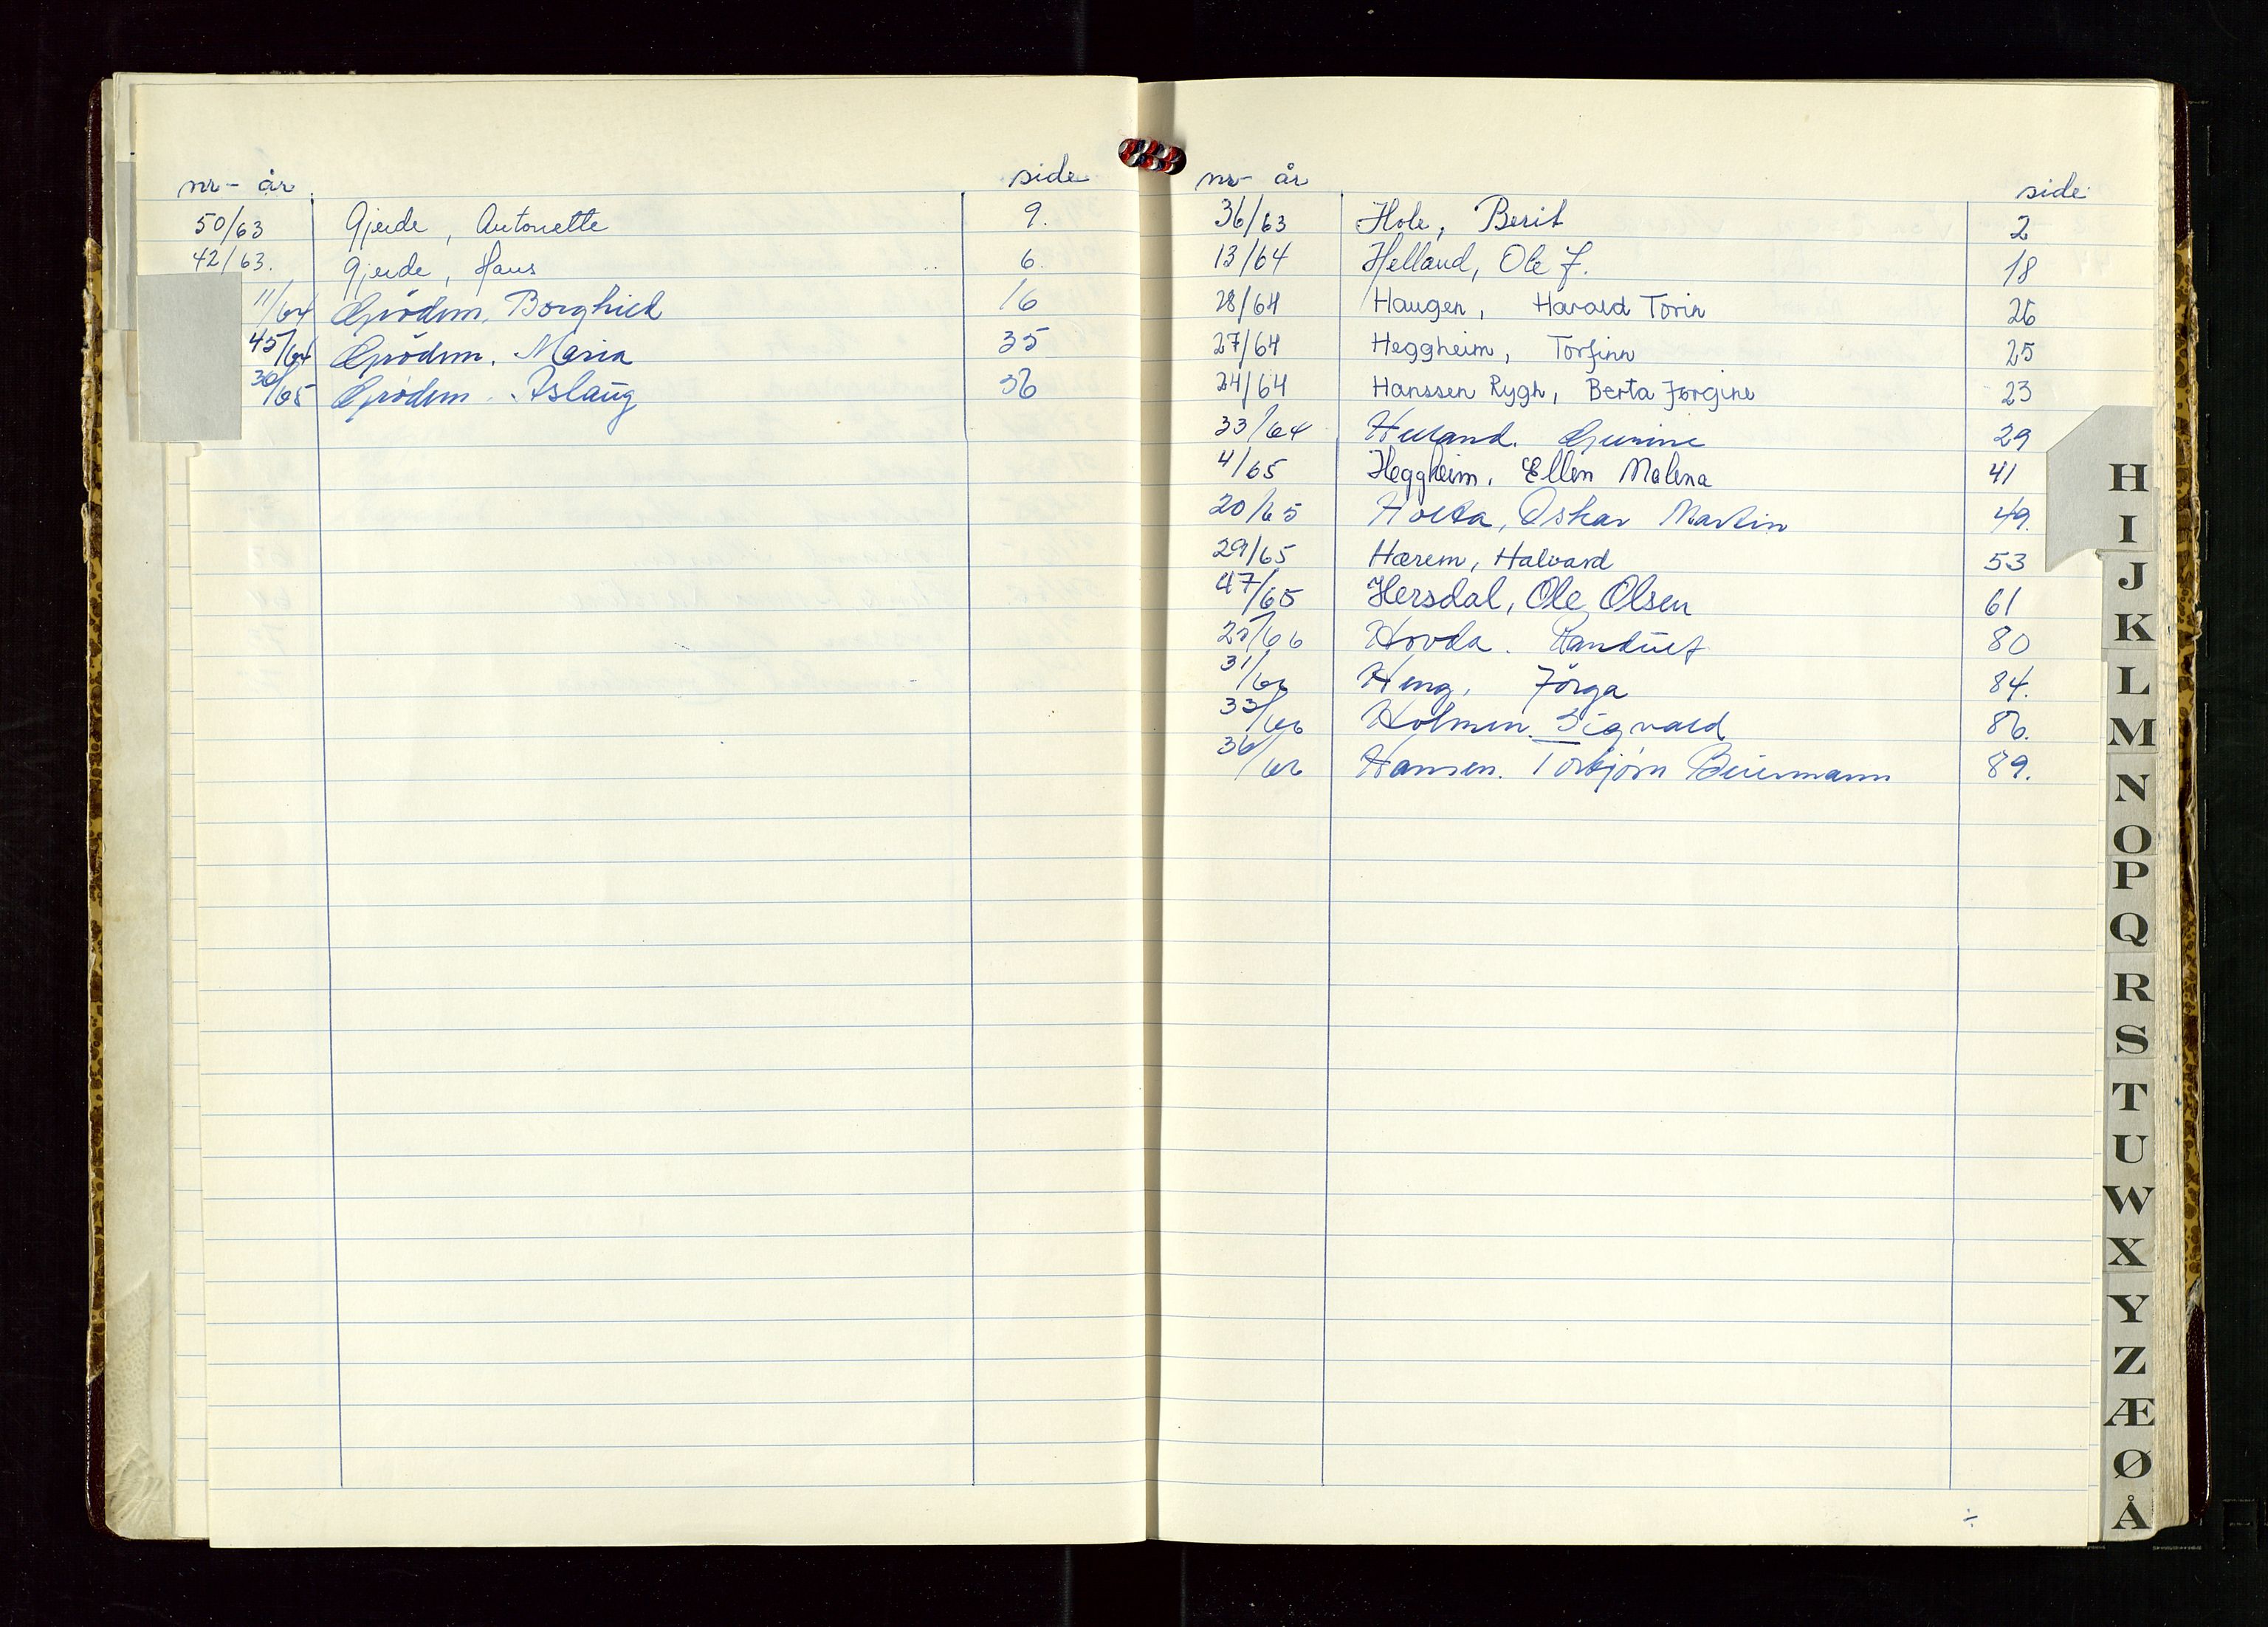 nr - år side
50/63 Gjerde, Antonette 9.
42/63. Gjerde, Hans 6.
11/64 Grödem, Borghild 16
45/64 Grödem, Maria 35
30/65 Grödem. Aslaug 36
nr - år side
36/63 Hole, Berit 2
13/64 Helland, Ole J. 18
28/64 Haugen, Harald Torin 26
27/64 Heggheim, Torfinn 25
24/64 Hanssen Rygh, Berta Jørgine 23
33/64 29
4/65 Heggheim, Ellen Malena 41
20/65 Holta, Oskar Martin 49.
29/65 Hærem, Halvard 53
47/65 Hersdal, Ole Olsen 61
/66 Hovda. 80
31/66 Jörga 84.
33/66 Holmen. Sigvald 86.
36/66 Hansen. Torbjørn 89.
H
I
J
K
L
M
N
O
P
Q
R
S
T
U
W
X
Y
Z
Æ
Ø
Å
÷